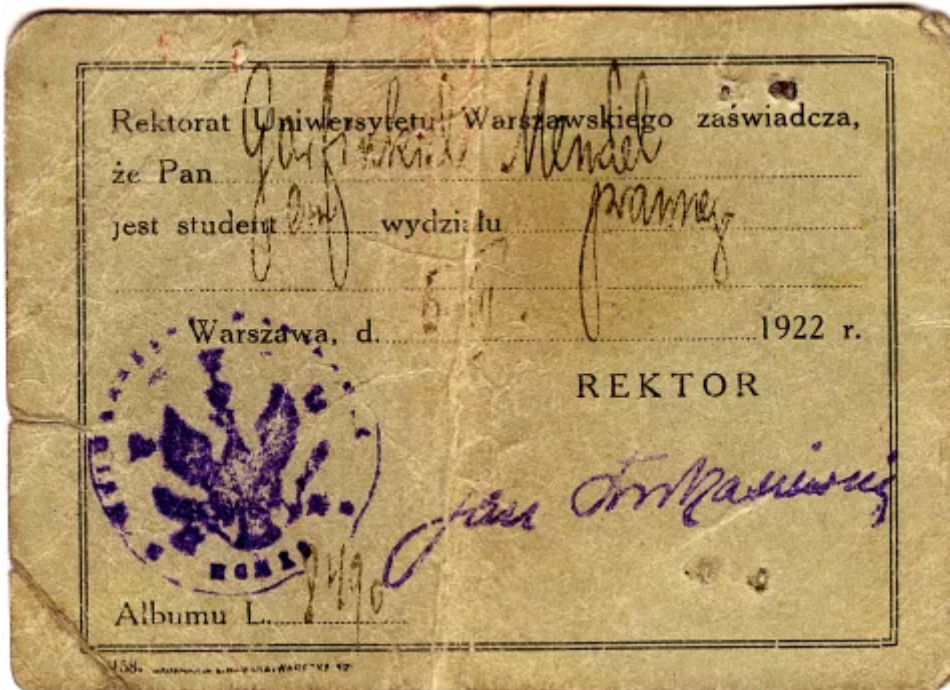 Rektorat Uniwersytetu Warszawskiego zaświadcza,
że Pan Garfinkiel Mendel
jest student em wydziału prawnego
Warszawa, d. 1922 r.
REKTOR
Jan Łukasiewicz
Albumu L. 8490